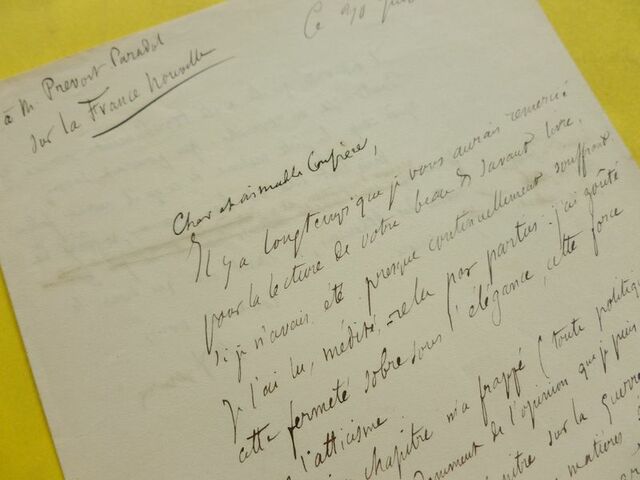 à M. Prevost Paradol
sur la France nouvelle
Ce 30
Cher et aimable Confrère,
Il y a longtemps que je vous aurais remercié
pour la lecture de votre beau & savant livre,
si je n'avais été presque continuellement souffrant
Je l'ai lu, médité, relu par parties : j'ai goûté
cette fermeté sobre sous l'élégance, cette force
l'atticisme.
chapitre m'a frappé (toute politique
de l'opinion que je puis
sur la guerre
matières